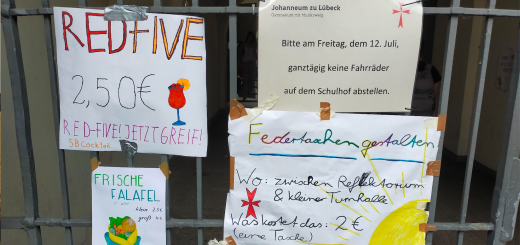 RED FIVE
2,50€
RED-FIVE! JETZT GREIF!
SB Cocktail
FRISCHE
FALAFEL
klein 2,5€
groß 4€
Johanneum zu Lübeck
Gymnasium mit Musikzweig
Bitte am Freitag, dem 12. Juli,
ganztägig keine Fahrräder
auf dem Schulhof abstellen.
Federtaschen gestalten
Wo: zwischen Reflektorium
& kleiner Turnhalle
Was kostet das: 2€
(eine Tasche)